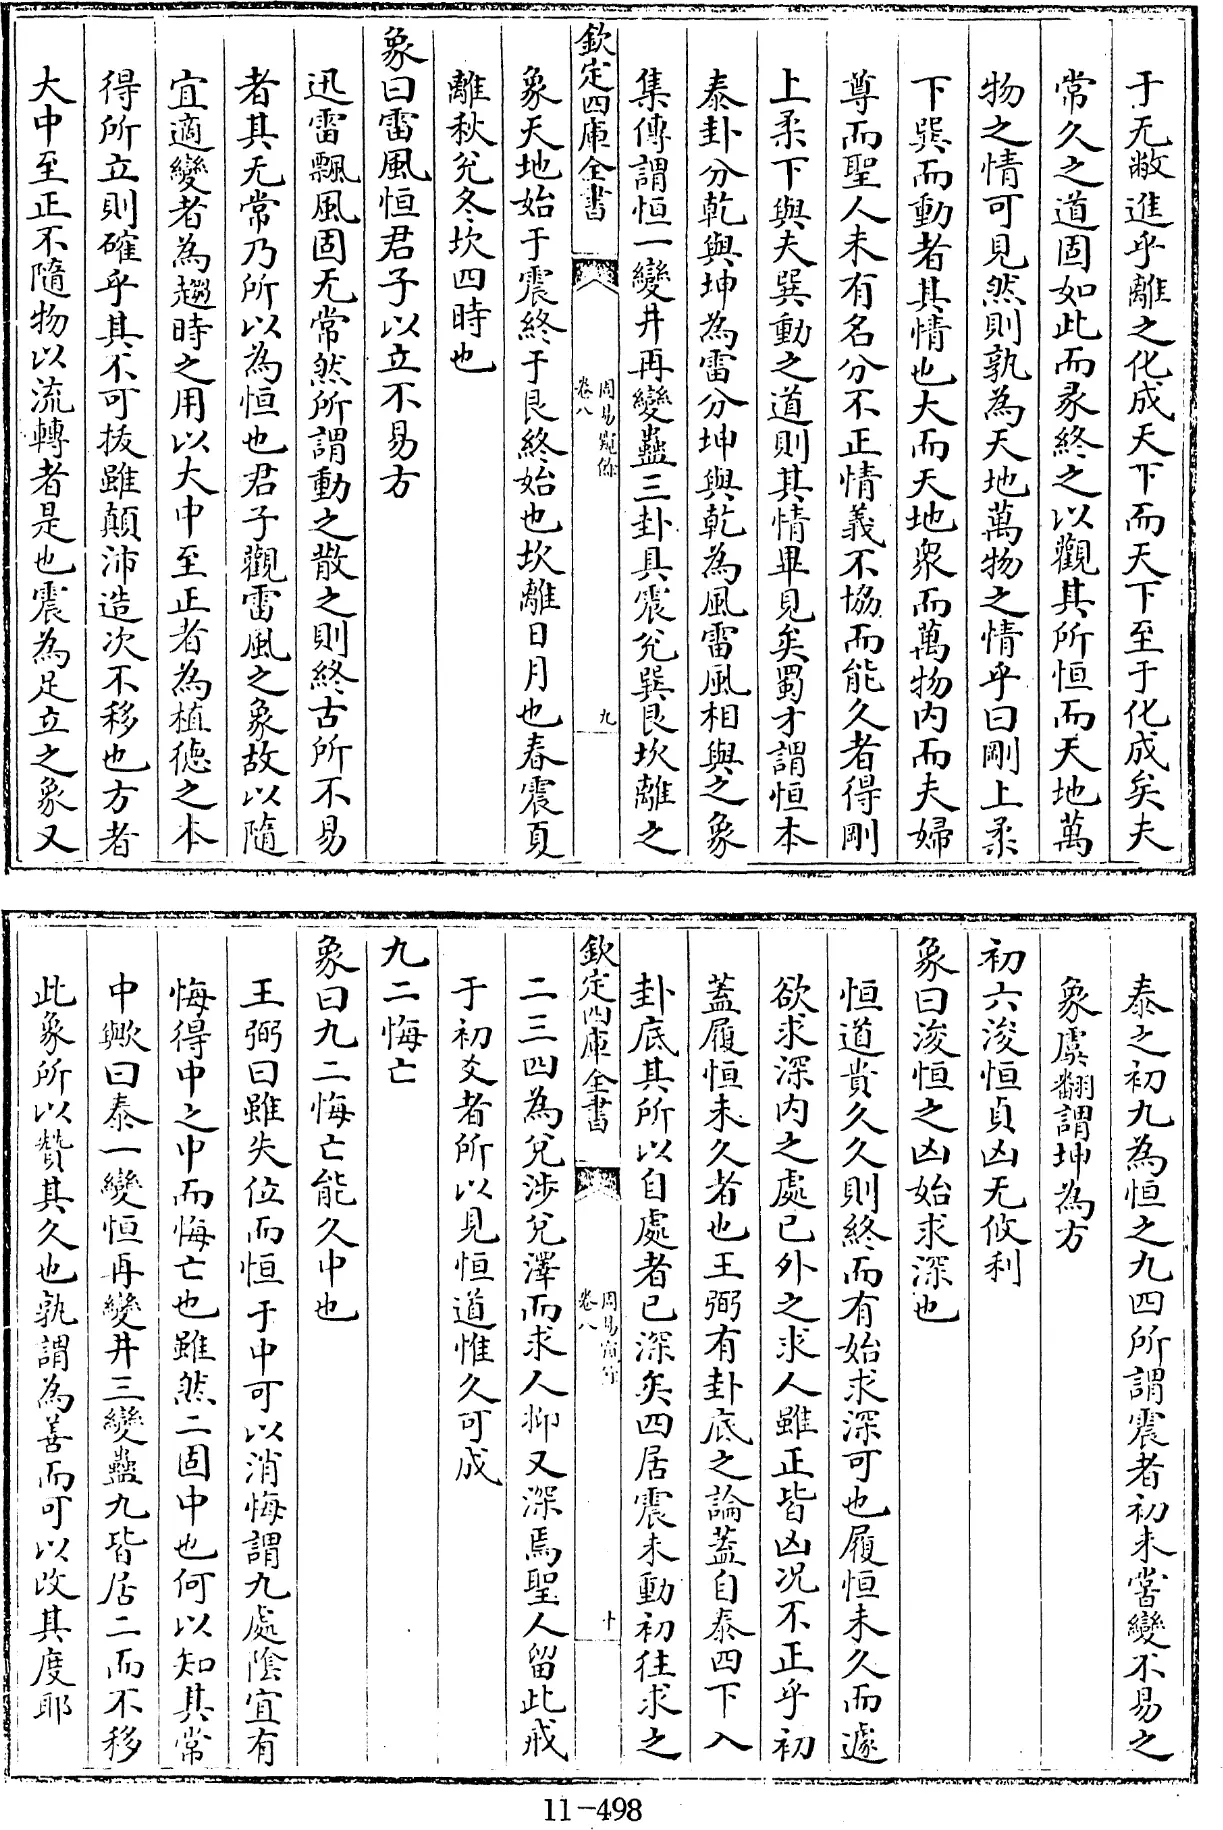 于无敝進乎離之化成天下而天下至于化成矣夫
常久之道固如此而彖終之以觀其所恒而天地萬
物之情可見然則孰為天地萬物之情乎曰剛上柔
下巽而動者其情也大而天地衆而萬物内而夫婦
尊而聖人未有名分不正情義不協而能久者得剛
上柔下與夫巽動之道則其情畢見矣蜀才謂恒本
泰卦分乾與坤為雷分坤與乾為風雷風相與之象
集傳謂恒一變井再變蠱三卦具震兊巽艮坎離之
欽定四庫全書
周易窺餘
卷八
九
象天地始于震終于艮終始也坎離日月也春震夏
離秋兊冬坎四時也
象曰雷風恒君子以立不易方
迅雷飄風固无常然所謂動之散之則終古所不易
者其无常乃所以為恒也君子觀雷風之象故以隨
宜適變者為趨時之用以大中至正者為植徳之本
得所立則確乎其不可拔雖顛沛造次不移也方者
大中至正不隨物以流轉者是也震為足立之象又
泰之初九為恒之九四所謂震者初未嘗變不易之
象虞翻謂坤為方
初六浚恒貞凶无攸利
象曰浚恒之凶始求深也
恒道貴久久則終而有始求深可也履恒未久而遽
欲求深内之處已外之求人雖正皆凶况不正乎初
蓋履恒未久者也王弼有卦底之論蓋自泰四下入
卦底其所以自處者已深矣四居震未動初往求之
欽定四庫全書
周易窺餘
卷八
十
二三四為兊涉兊澤而求人抑又深焉聖人留此戒
于初爻者所以見恒道惟久可成
九二悔亡
象曰九二悔亡能久中也
王弼曰雖失位而恒于中可以消悔謂九處陰宜有
悔得中之中而悔亡也雖然二固中也何以知其常
中歟曰泰一變恒再變井三變蠱九皆居二而不移
此象所以贊其久也孰謂為善而可以改其度耶
11-498